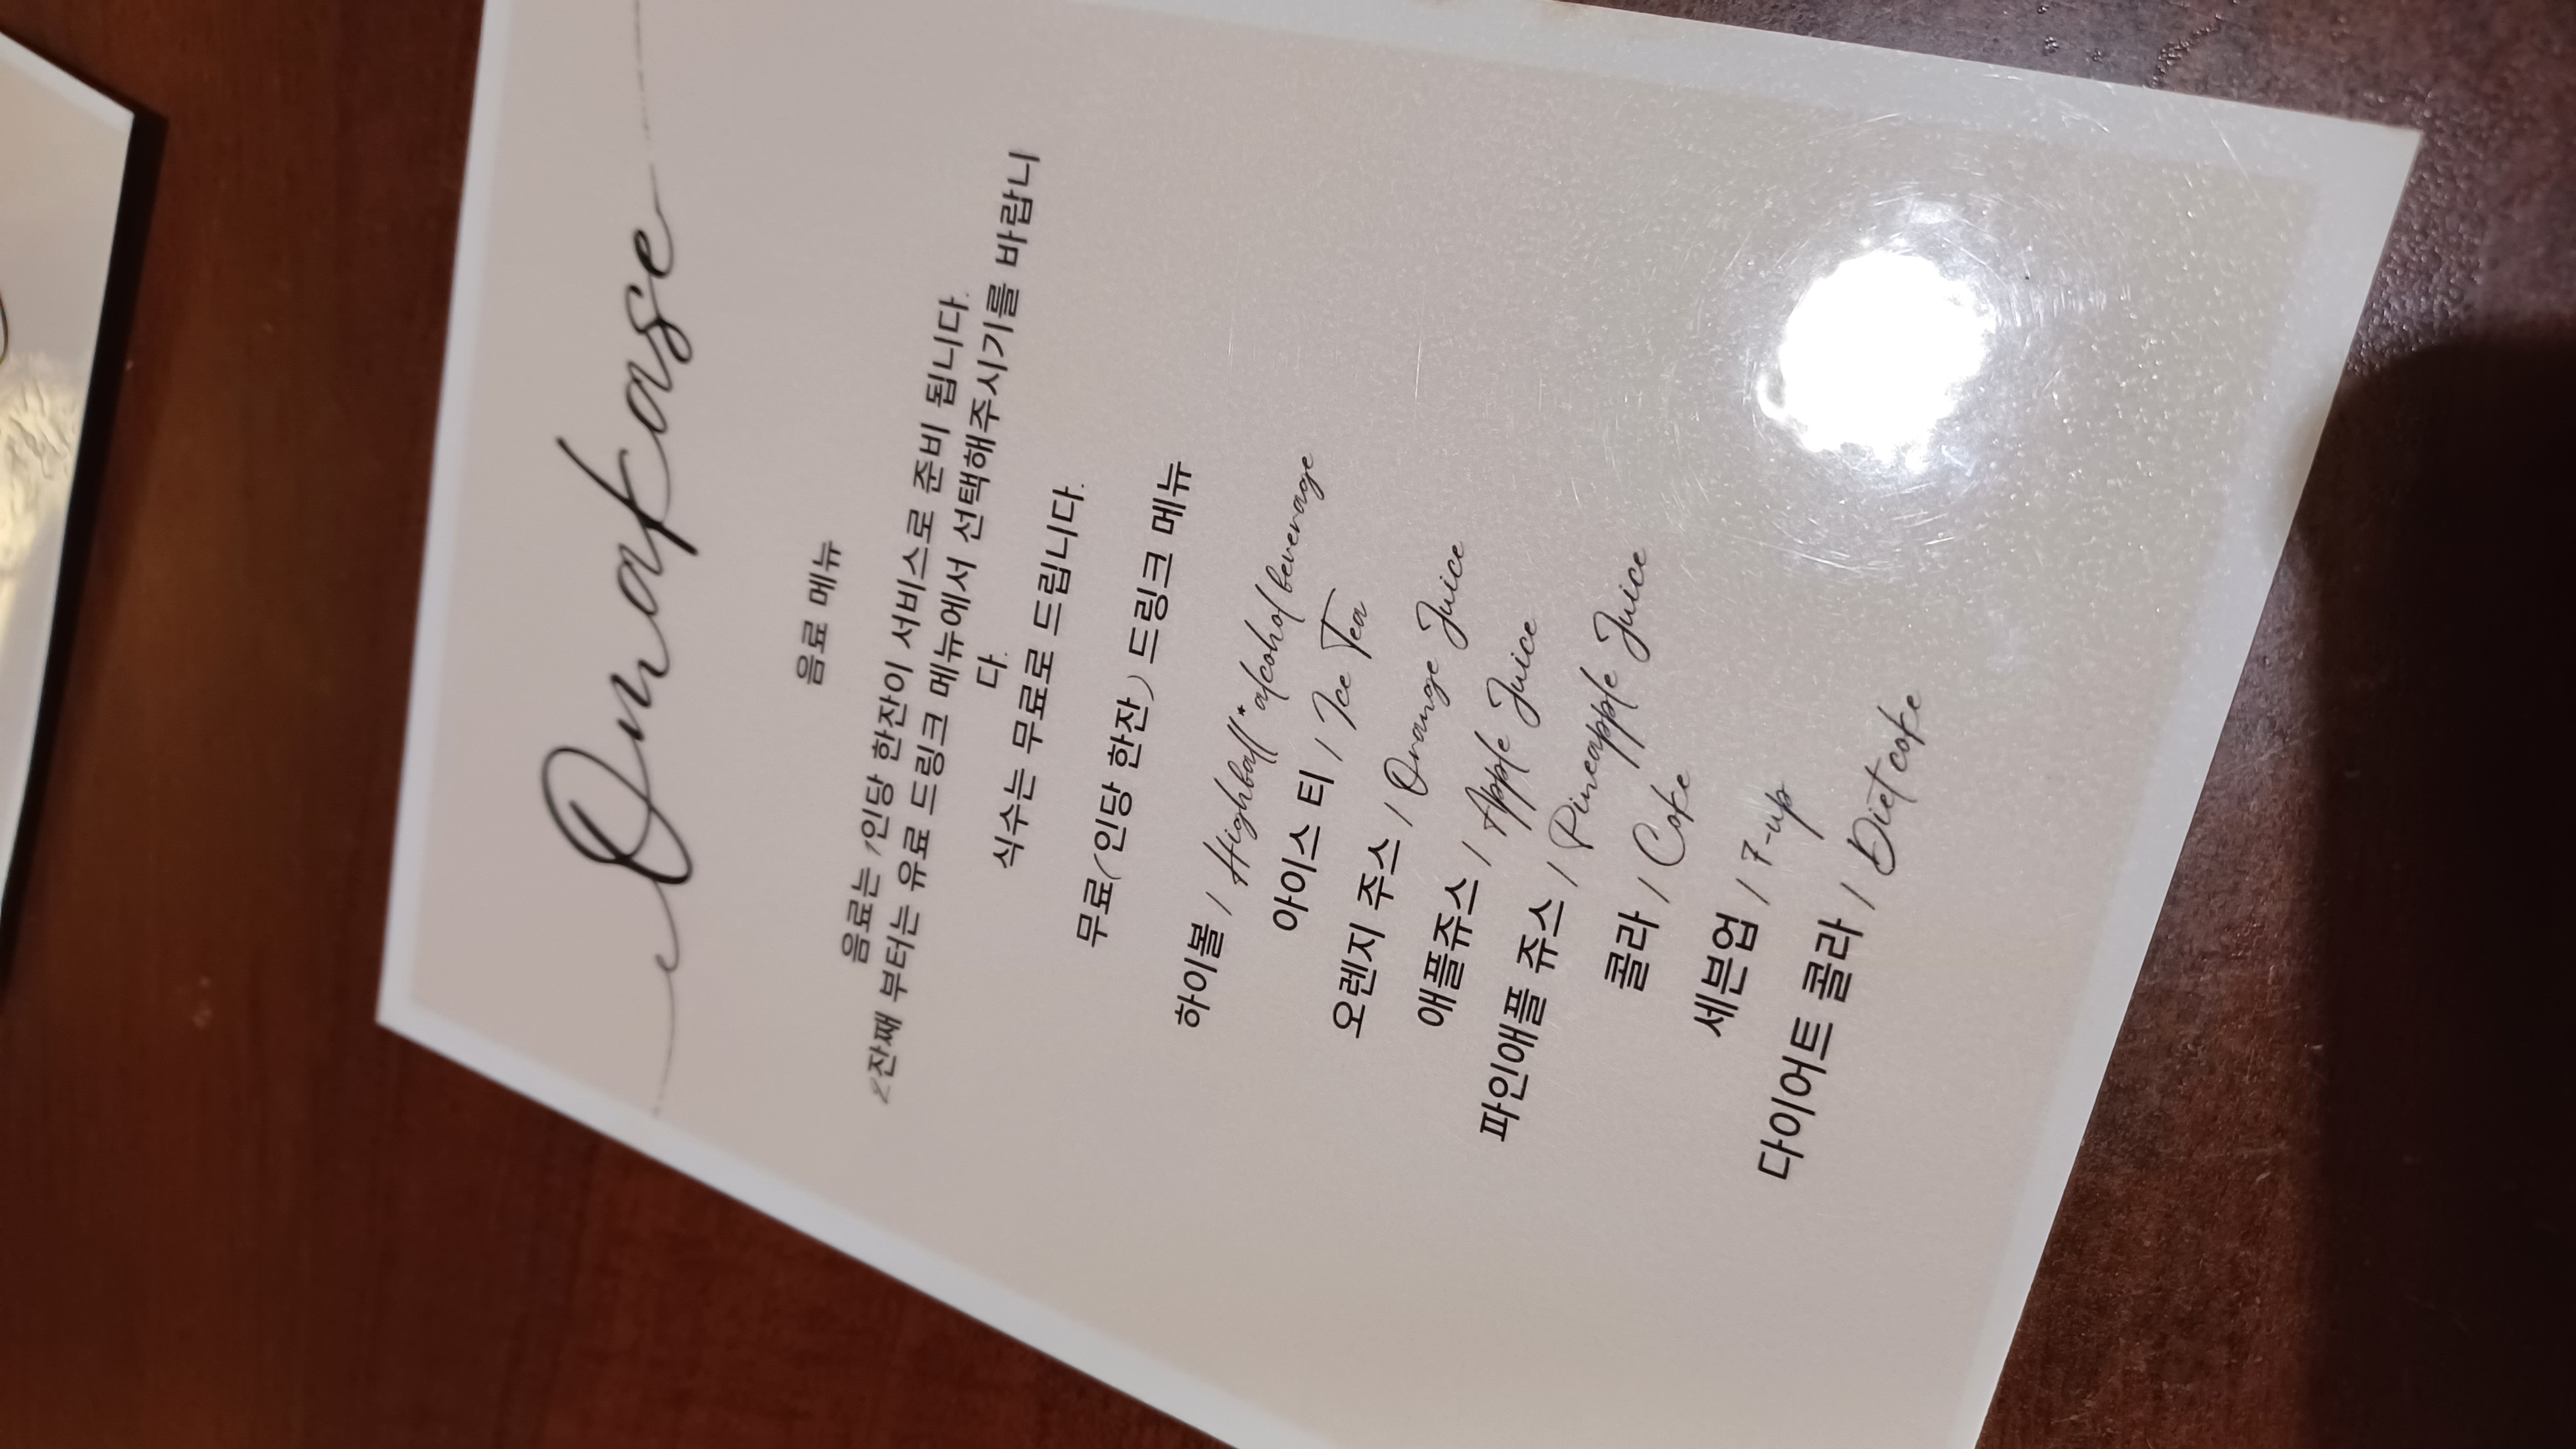 Omakase
음료 메뉴
음료는 1인당 한잔이 서비스로 준비 됩니다.
2잔째 부터는 유료 드링크 메뉴에서 선택해주시기를 바랍니
다.
식수는 무료로 드립니다.
무료(인당 한잔) 드링크 메뉴
하이볼 / Highball *alcohol beverage
아이스 티 / Ice Tea
오렌지 주스 / Orange Juice
애플쥬스 / Apple Juice
파인애플 쥬스 / Pineapple Juice
콜라 / Coke
세븐업 / 7-up
다이어트 콜라 / Diet coke